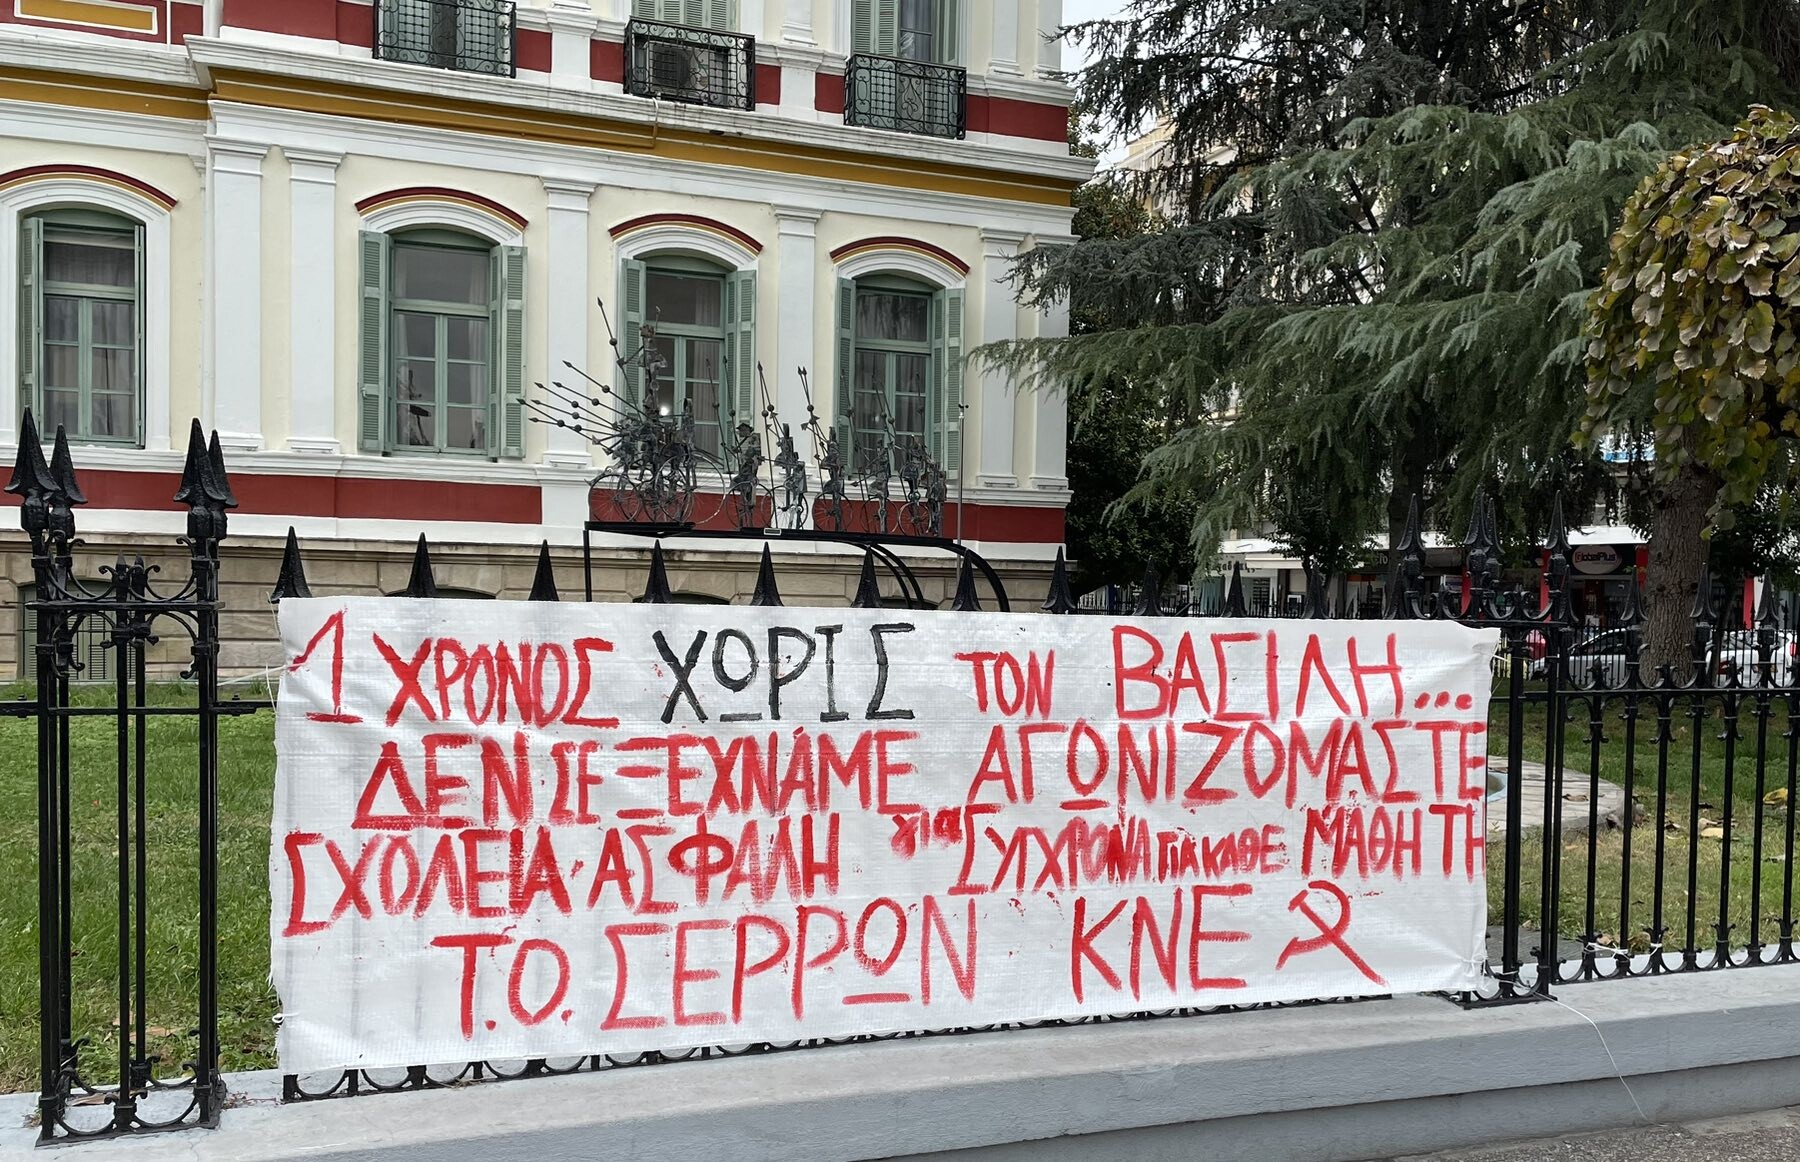 1 ΧΡΟΝΟΣ ΧΩΡΙΣ ΤΟΝ ΒΑΣΙΛΗ...
ΔΕΝ ΣΕ ΞΕΧΝΑΜΕ ΑΓΩΝΙΖΟΜΑΣΤΕ
για
ΣΧΟΛΕΙΑ ΑΣΦΑΛΗ ΣΥΓΧΡΟΝΑ ΓΙΑ ΚΑΘΕ ΜΑΘΗΤΗ
Τ.Ο. ΣΕΡΡΩΝ ΚΝΕ
GlobalPlus